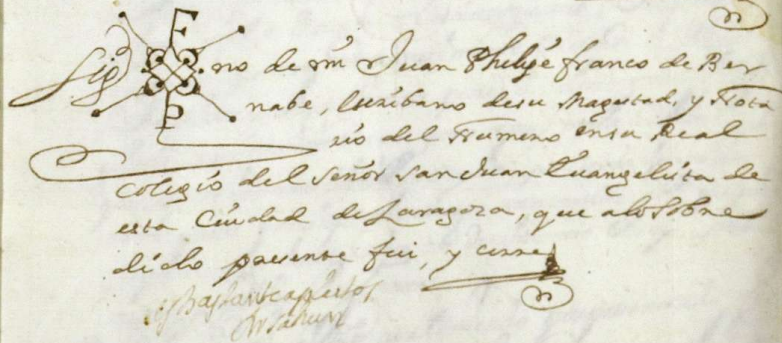 Sig no de mi Juan Phelipe franco de Ber
nabe, Escribano de su Magestad, y Nota
rio del Numero en su Real
Colegio del Señor San Juan Evangelista de
esta Ciudad de Zaragoza, que a lo sobre
dicho presente fui, y cerre